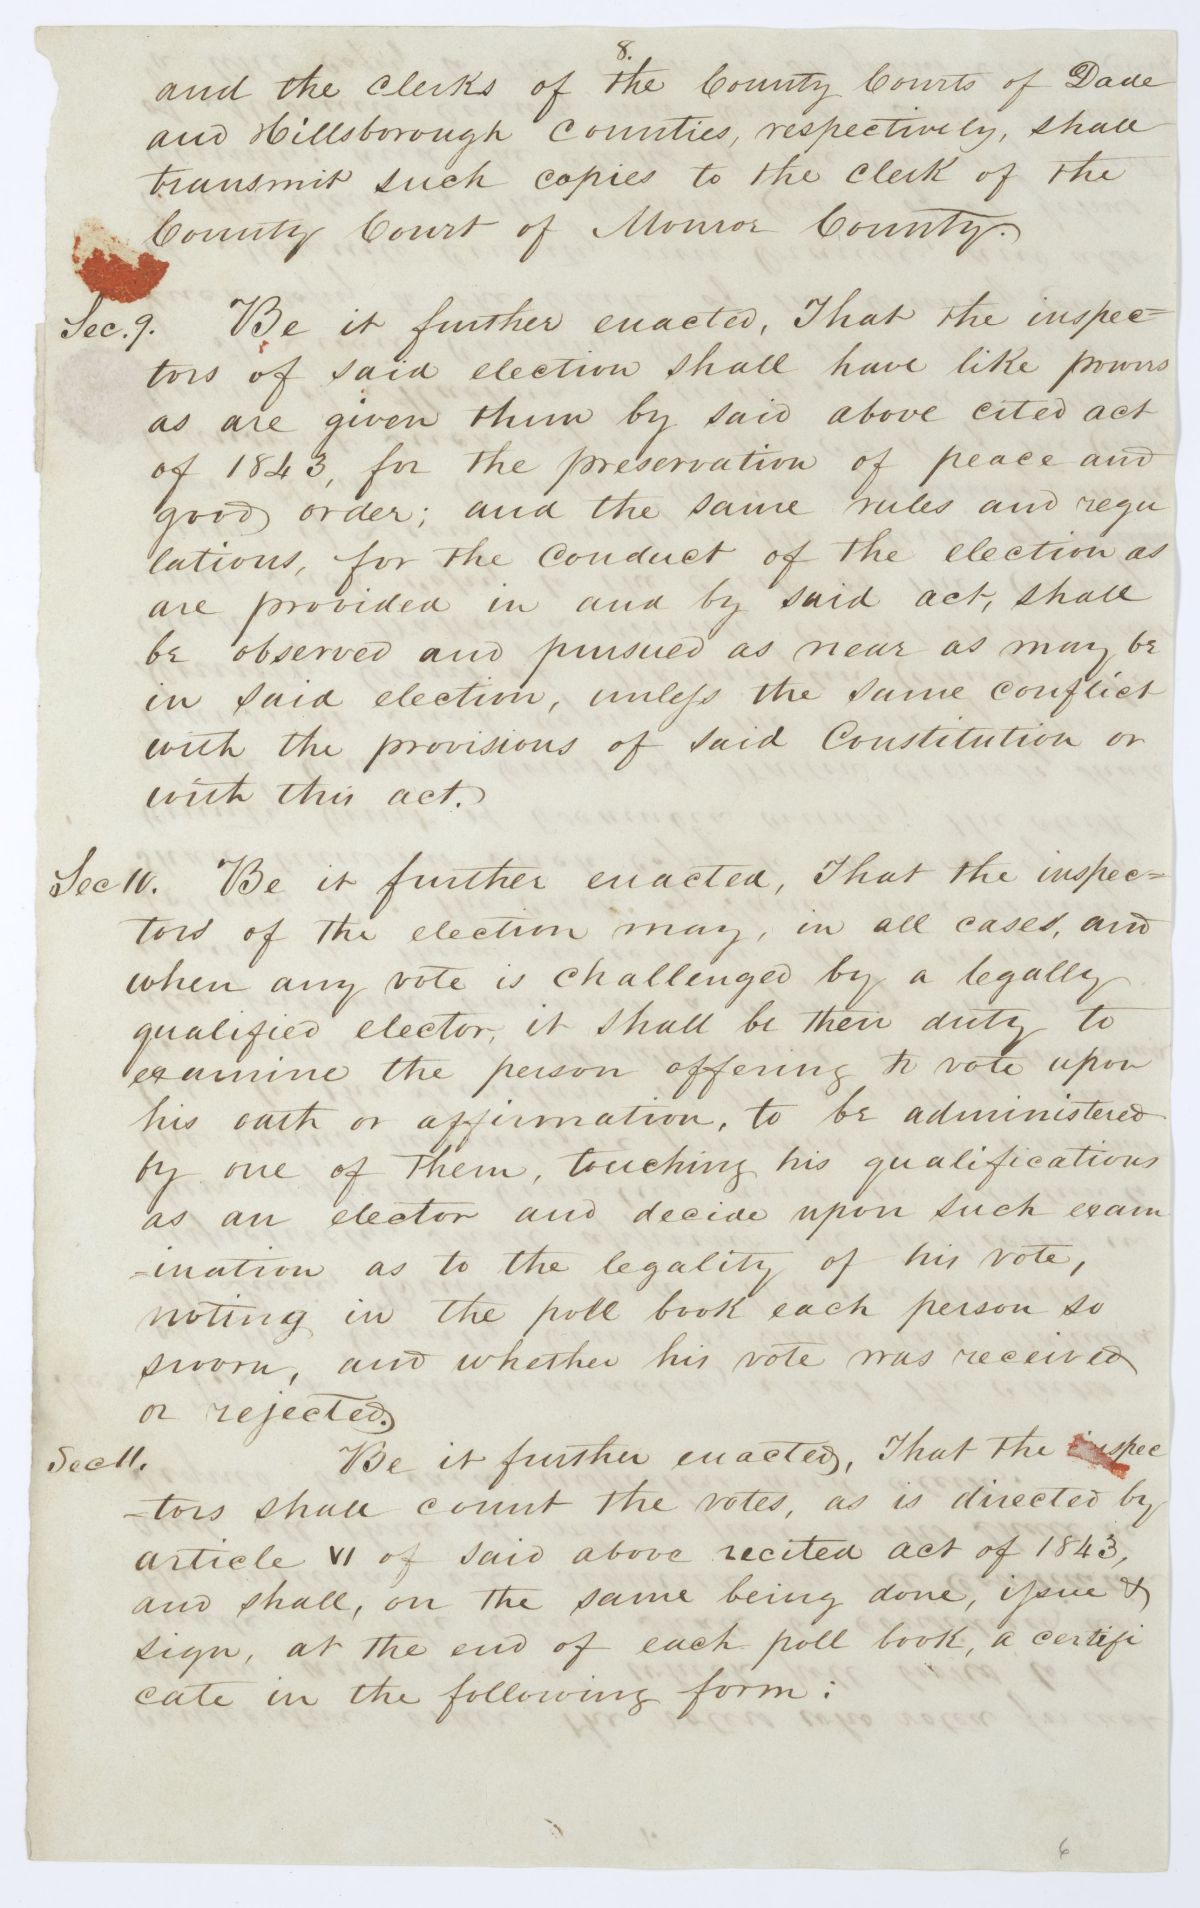 8.
and the Clerks of the County Courts of Dade
and Hillsborough Counties, respectively, shall
transmit such copies to the Clerk of the
County Court of Monroe County.
Sec. 9. Be it further enacted, That the inspec=
tors of said election shall have like powers
as are given them by said above cited act
of 1843, for the preservation of peace and
good order; and the same rules and regu
lations, for the conduct of the election as
are provided in and by said act, shall
be observed and pursued as near as may be
in said election, unless the same conflict
with the provisions of said Constitution or
with this act.
Sec 10. Be it further enacted, That the inspec=
tors of the election may, in all cases, and
when any vote is challenged by a legally
qualified elector, it shall be their duty to
examine the person offering to vote upon
his oath or affirmation, to be administered
by one of them, touching his qualifications
as an elector and decide upon such exam
-ination as to the legality of his vote,
noting in the poll book each person so
sworn, and whether his vote was received
or rejected.
Sec 11. Be it further enacted, That the inspec
-tors shall count the votes, as is directed by
article VI of said above recited act of 1843,
and shall, on the same being done, issue &
sign, at the end of each poll book, a certifi
cate in the following form:
6